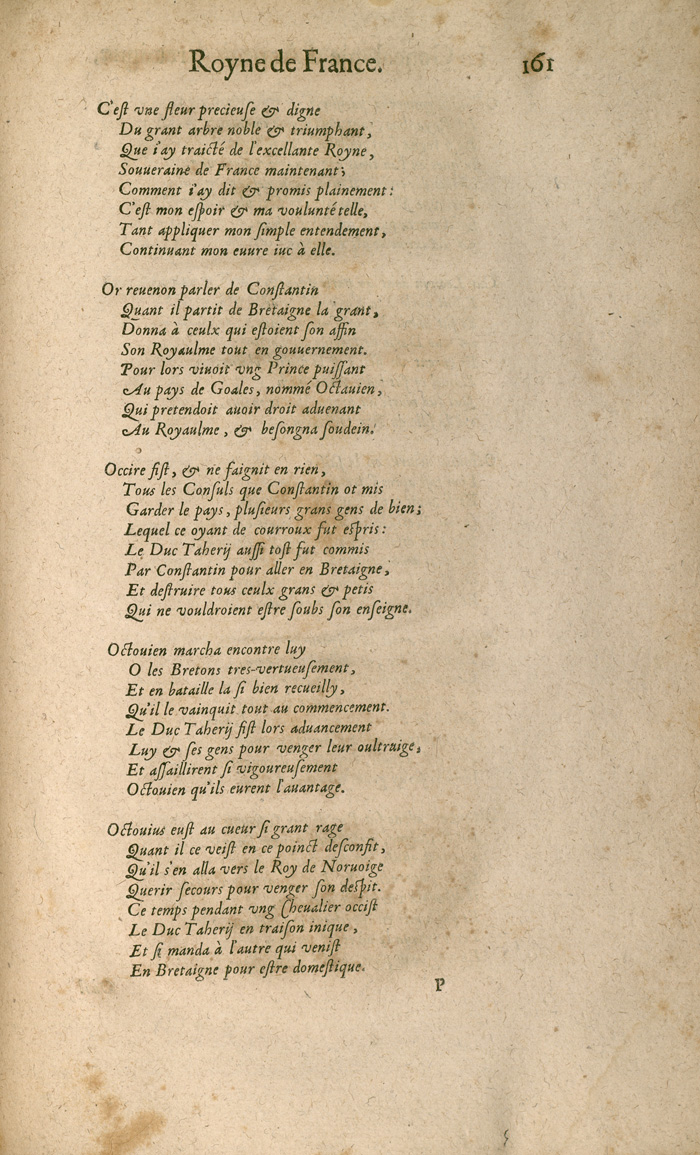 Royne de France. 161
C'eſt vne fleur precieuſe & digne
Du grant arbre noble & triumphant,
Que i'ay traicté de l'excellante Royne,
Souueraine de France maintenant;
Comment i'ay dit & promis plainement:
C'eſt mon eſpoir & ma voulunté telle,
Tant appliquer mon ſimple entendement,
Continuant mon euure iuc à elle.
Or reuenon parler de Conſtantin
Quant il partit de Bretaigne la grant,
Donna à ceulx qui eſtoient ſon affin
Son Royaulme tout en gouuernement.
Pour lors viuoit vng Prince puiſſant
Au pays de Goales, nommé Octauien,
Qui pretendoit auoir droit aduenant
Au Royaulme, & beſongna ſoudein.
Occire fiſt, & ne faignit en rien,
Tous les Conſuls que Conſtantin ot mis
Garder le pays, pluſieurs grans gens de bien;
Lequel ce oyant de courroux fut eſpris:
Le Duc Taherij auſſi toſt fut commis
Par Conſtantin pour aller en Bretaigne,
Et deſtruire tous ceulx grans & petis
Qui ne vouldroient eſtre ſoubs ſon enſeigne.
Octouien marcha encontre luy
O les Bretons tres-vertueuſement,
Et en bataille la ſi bien recueilly,
Qu'il le vainquit tout au commencement.
Le Duc Taherij fiſt lors aduancement
Luy & ſes gens pour venger leur oultraige,
Et aſſaillirent ſi vigoureuſement
Octouien qu'ils eurent l'auantage.
Octouius euſt au cueur ſi grant rage
Quant il ce veiſt en ce poinct deſconfit,
Qu'il s'en alla vers le Roy de Noruoige
Querir ſecours pour venger ſon deſpit.
Ce temps pendant vng Cheualier occiſt
Le Duc Taherij en traiſon inique,
Et ſi manda à l'autre qui veniſt
En Bretaigne pour eſtre domeſtique.
P